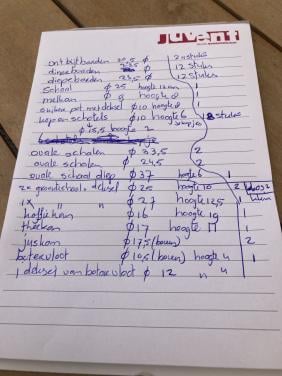 juvent
ontbijtborden 20,5 ø 12 stuks
dinerborden ø 12 stuks
diepe borden 23,5 ø 12 stuks
Schaal ø 25 hoogte 1
melkan ø 8 hoogte 8 1
suiker pot met deksel ø 10 hoogte 8 1
kop en schotels ø 10 hoogte 6 8 stuks
ø 15,5 hoogte 2
ovale schalen ø 33,5 2
ovale schalen ø 24,5 2
ovale schaal diep ø 37 hoogte 6 1
2x groenteschaal + deksel ø 25 hoogte 10 2
1x " " ø 27 hoogte 12,5 1
koffiekan ø 16 hoogte 19 1
theekan ø 17 hoogte 17 1
juskan ø 17,5 (boven) 2
botervloot ø 10,5 (boven) hoogte 4 1
1 deksel van botervloot ø 12 " 4